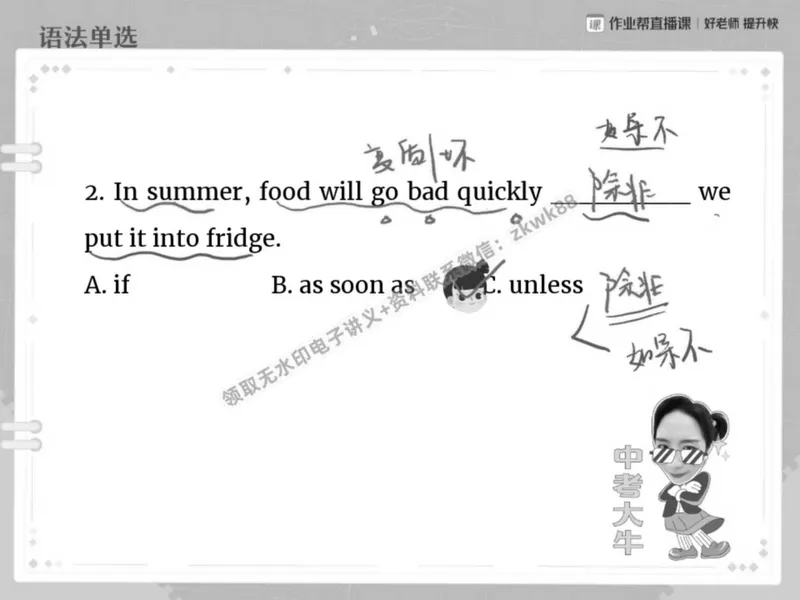 语法单选
作业帮直播课 | 好老师 提升快
如果不
变质/坏
除非
2. In summer, food will go bad quickly ______ we
put it into fridge.
A. if B. as soon as C. unless
除非
如果不
领取无水印电子讲义+资料联系微信：zkwk88
中考大牛